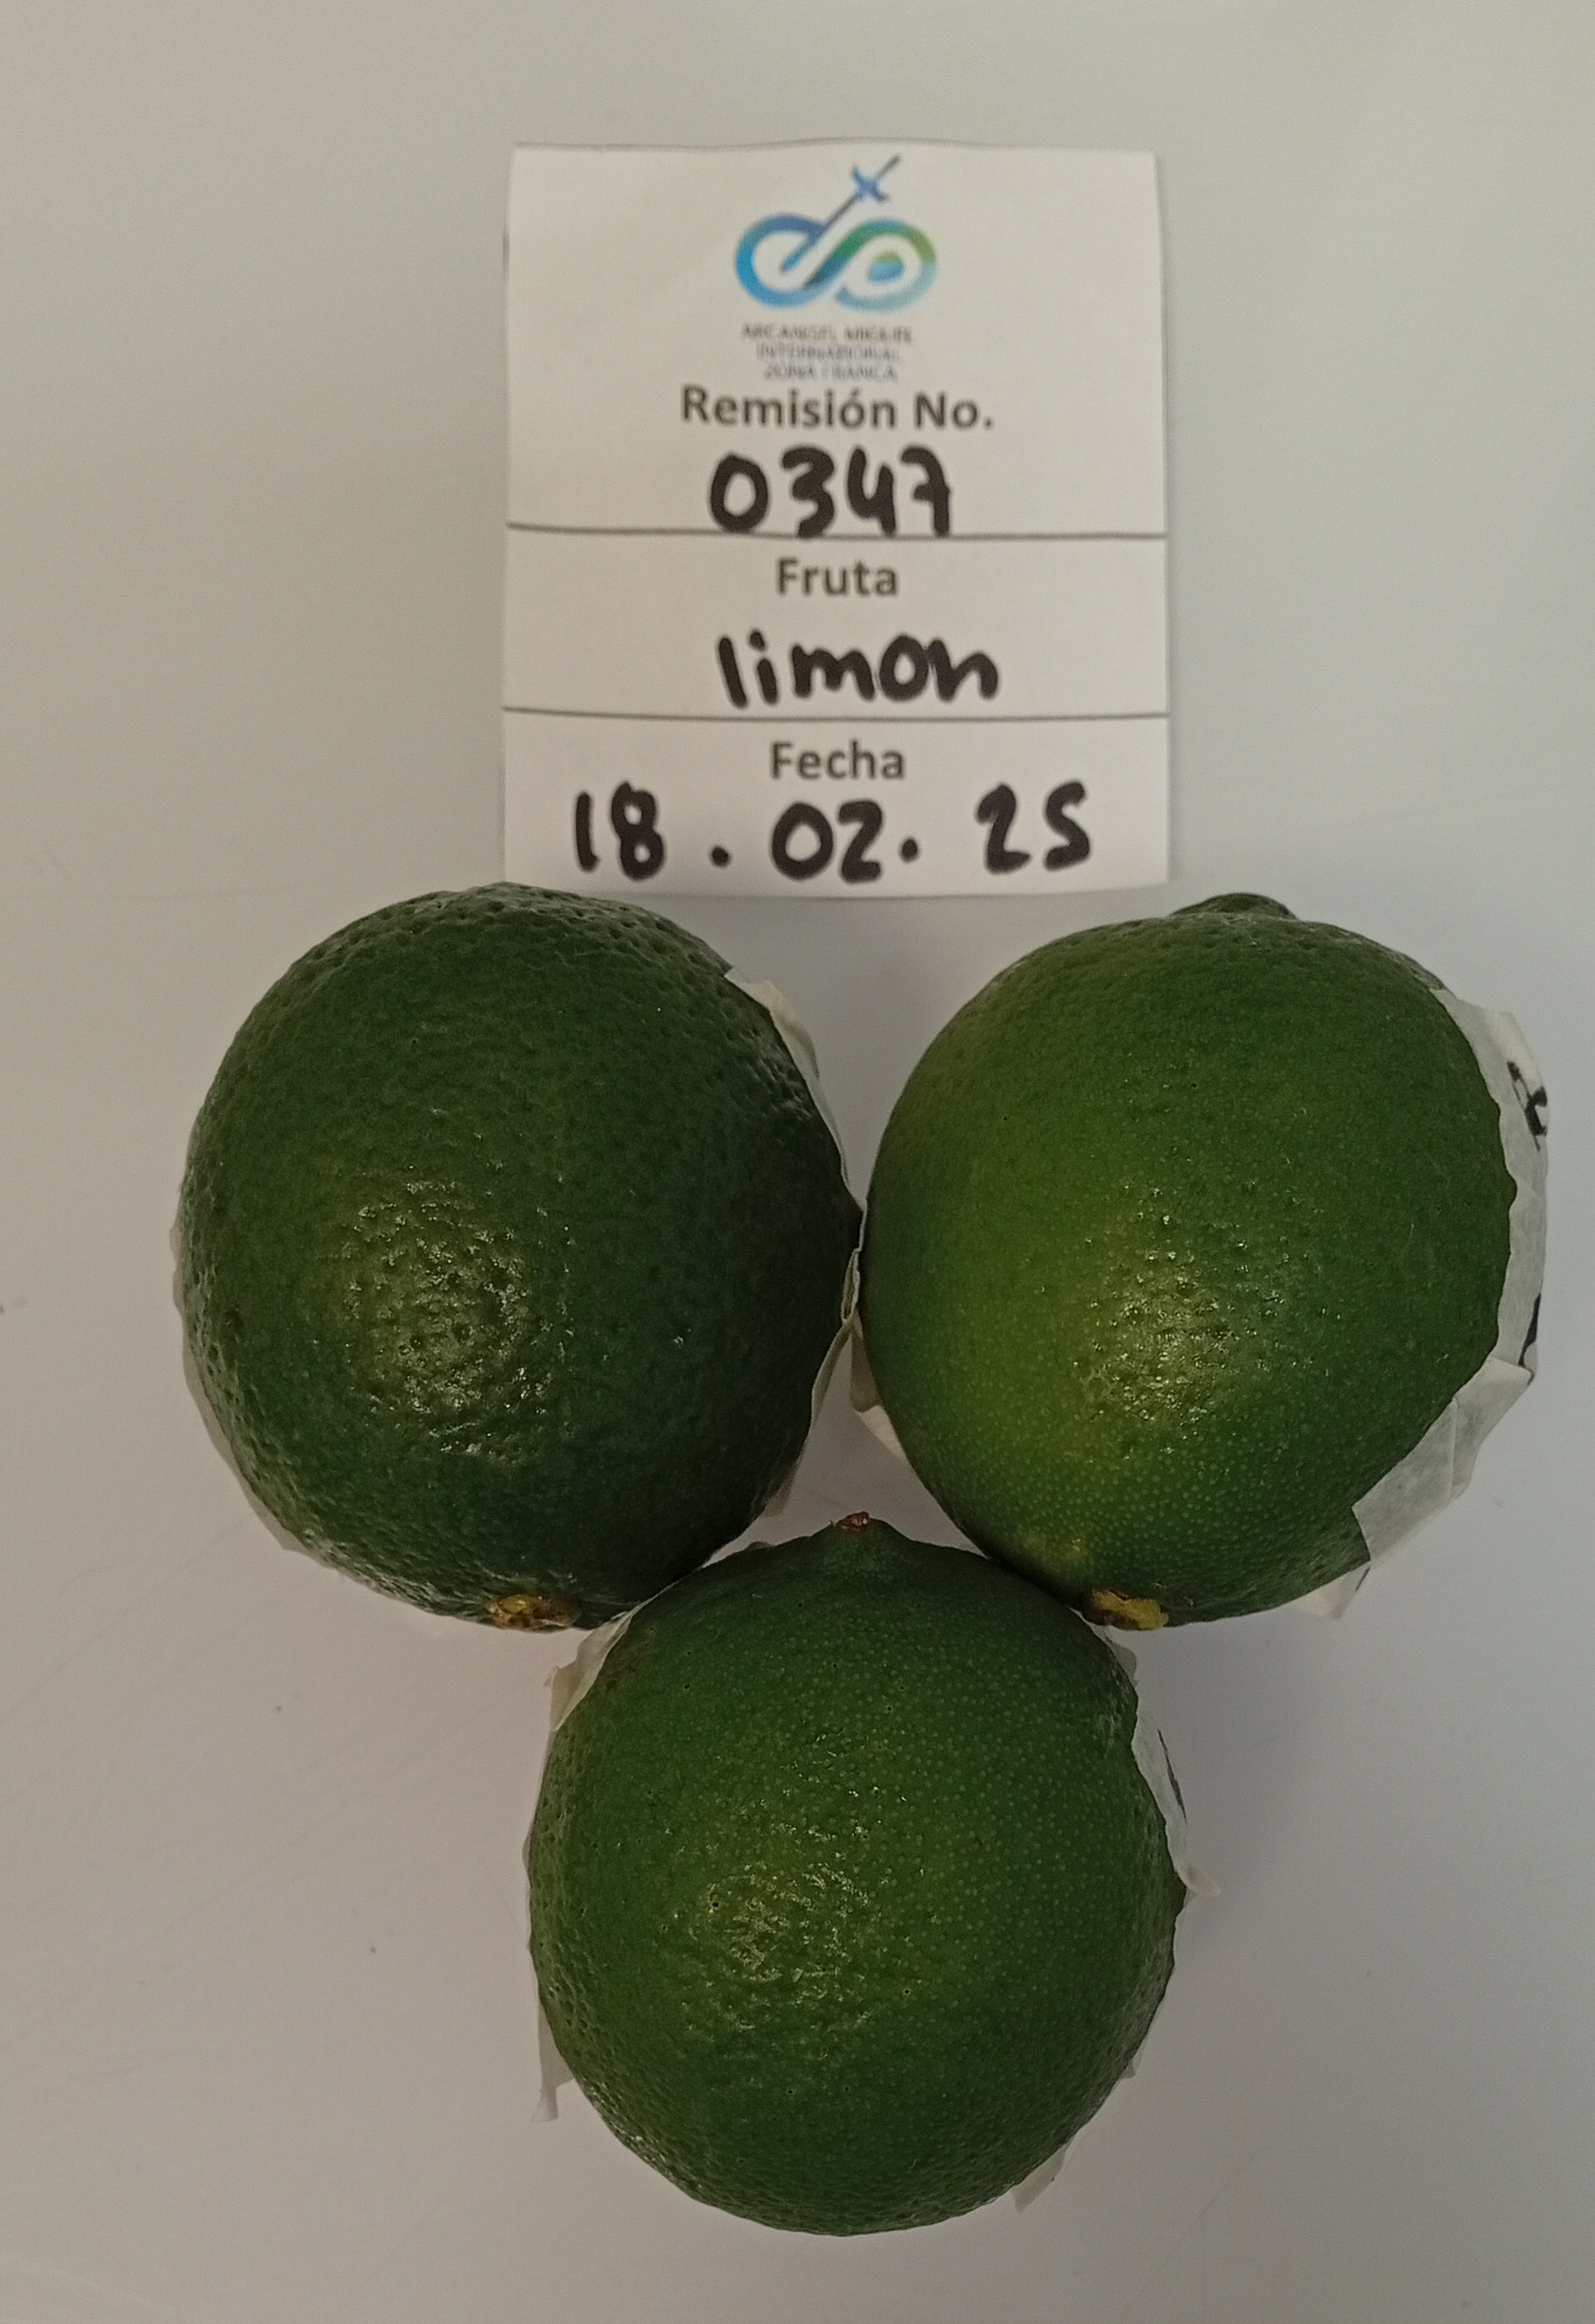 ARCANGEL MIGUEL
INTERNATIONAL
ZONA FRANCA
Remisión No.
0347
Fruta
limon
Fecha
18.02.25